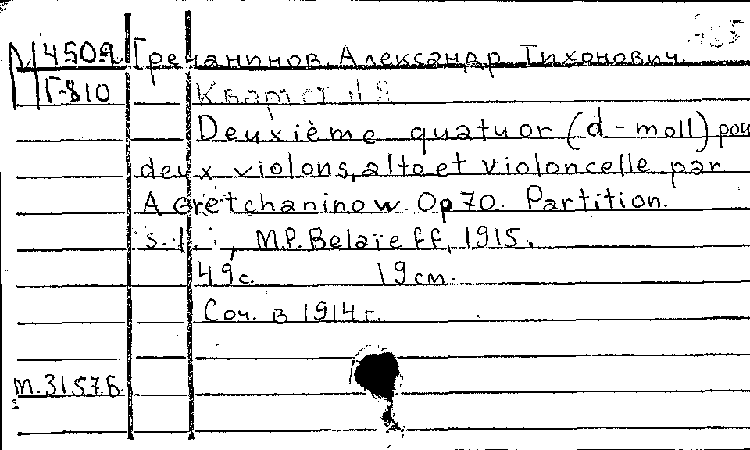 М 4502 Гречанинов, Александр Тихонович.
Г-810 Квартет
Deuxième quatuor (d-moll) pour
deux violons, alto et violoncelle par
A Gretchaninow Op 70. Partition.
s.l., M.P. Belaïeff, 1915.
49с. 19 см.
Соч. в 1914 г.